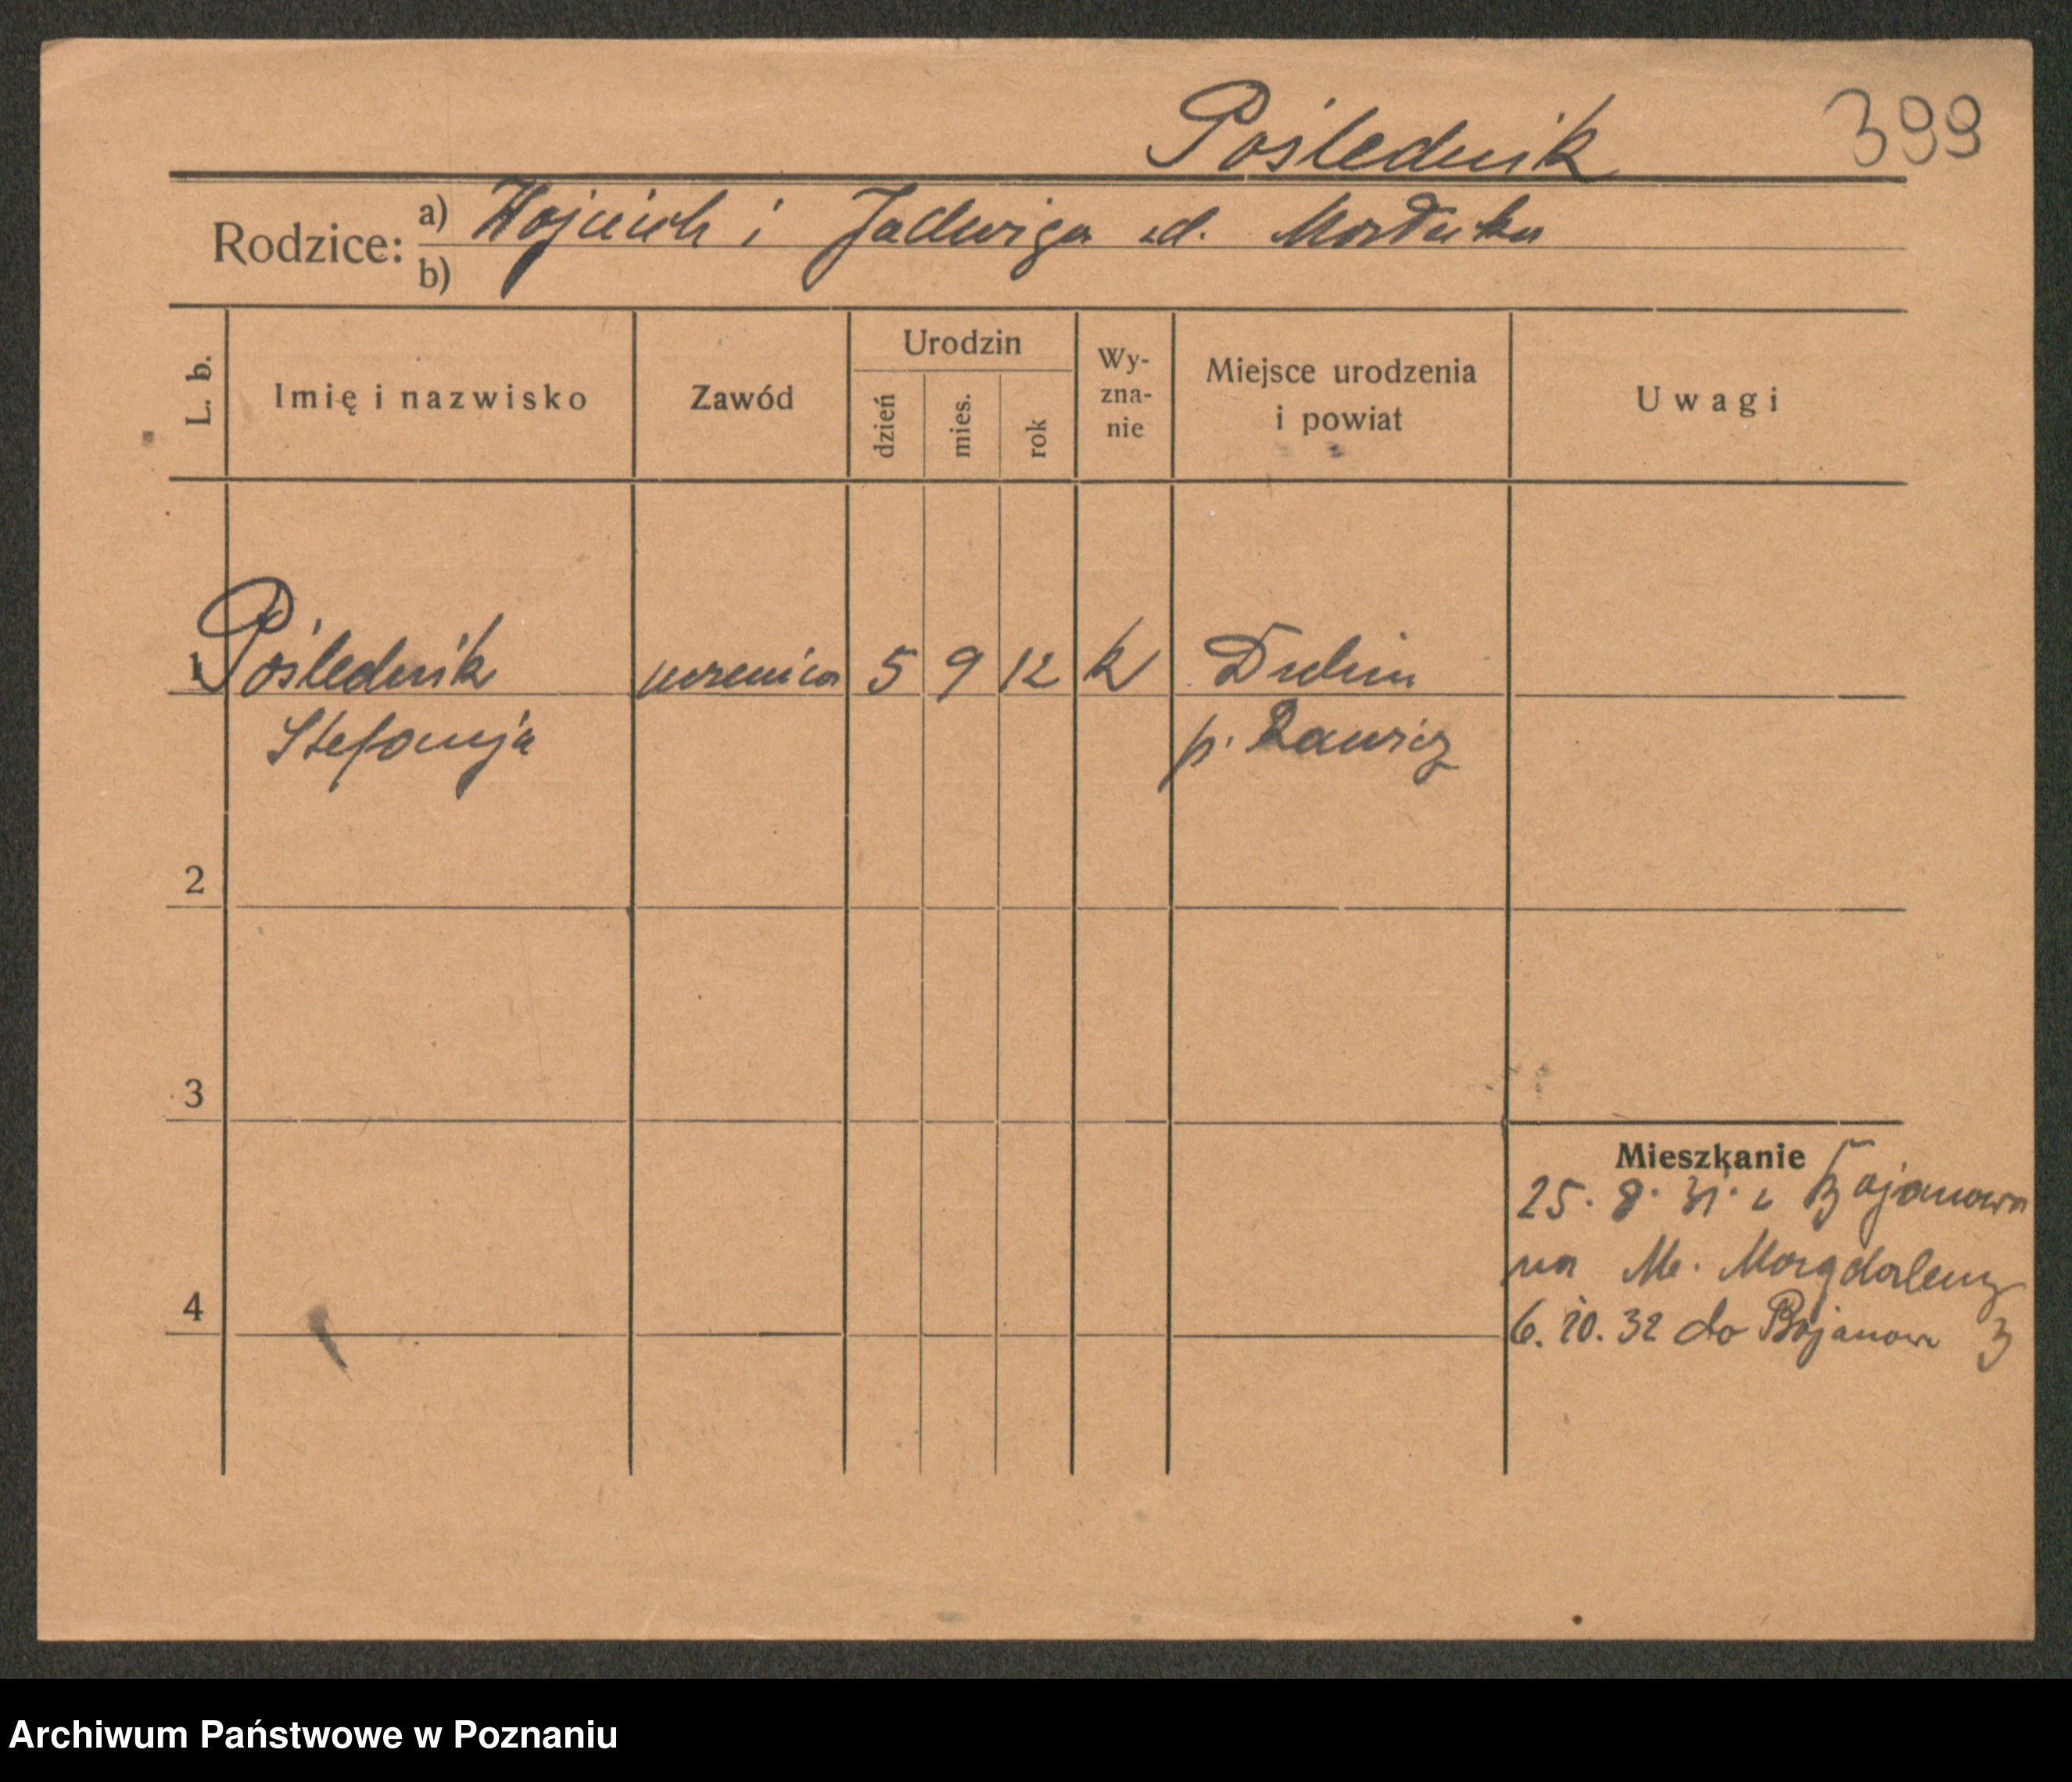 Poślednik 399
Rodzice: a) Wojciech i Jadwiga zd.
b)
L. b. Imię i nazwisko Zawód Urodzin dzień mies. rok Wy-
zna-
nie Miejsce urodzenia
i powiat Uwagi
1 Poślednik uczenica 5 9 12 k Dubin
Stefanja p. Rawicz
2
3
Mieszkanie
25. 8. 31. z Bojanowa
na M. Magdaleny
4
6. 10. 32 do Bojanowa 3
Archiwum Państwowe w Poznaniu